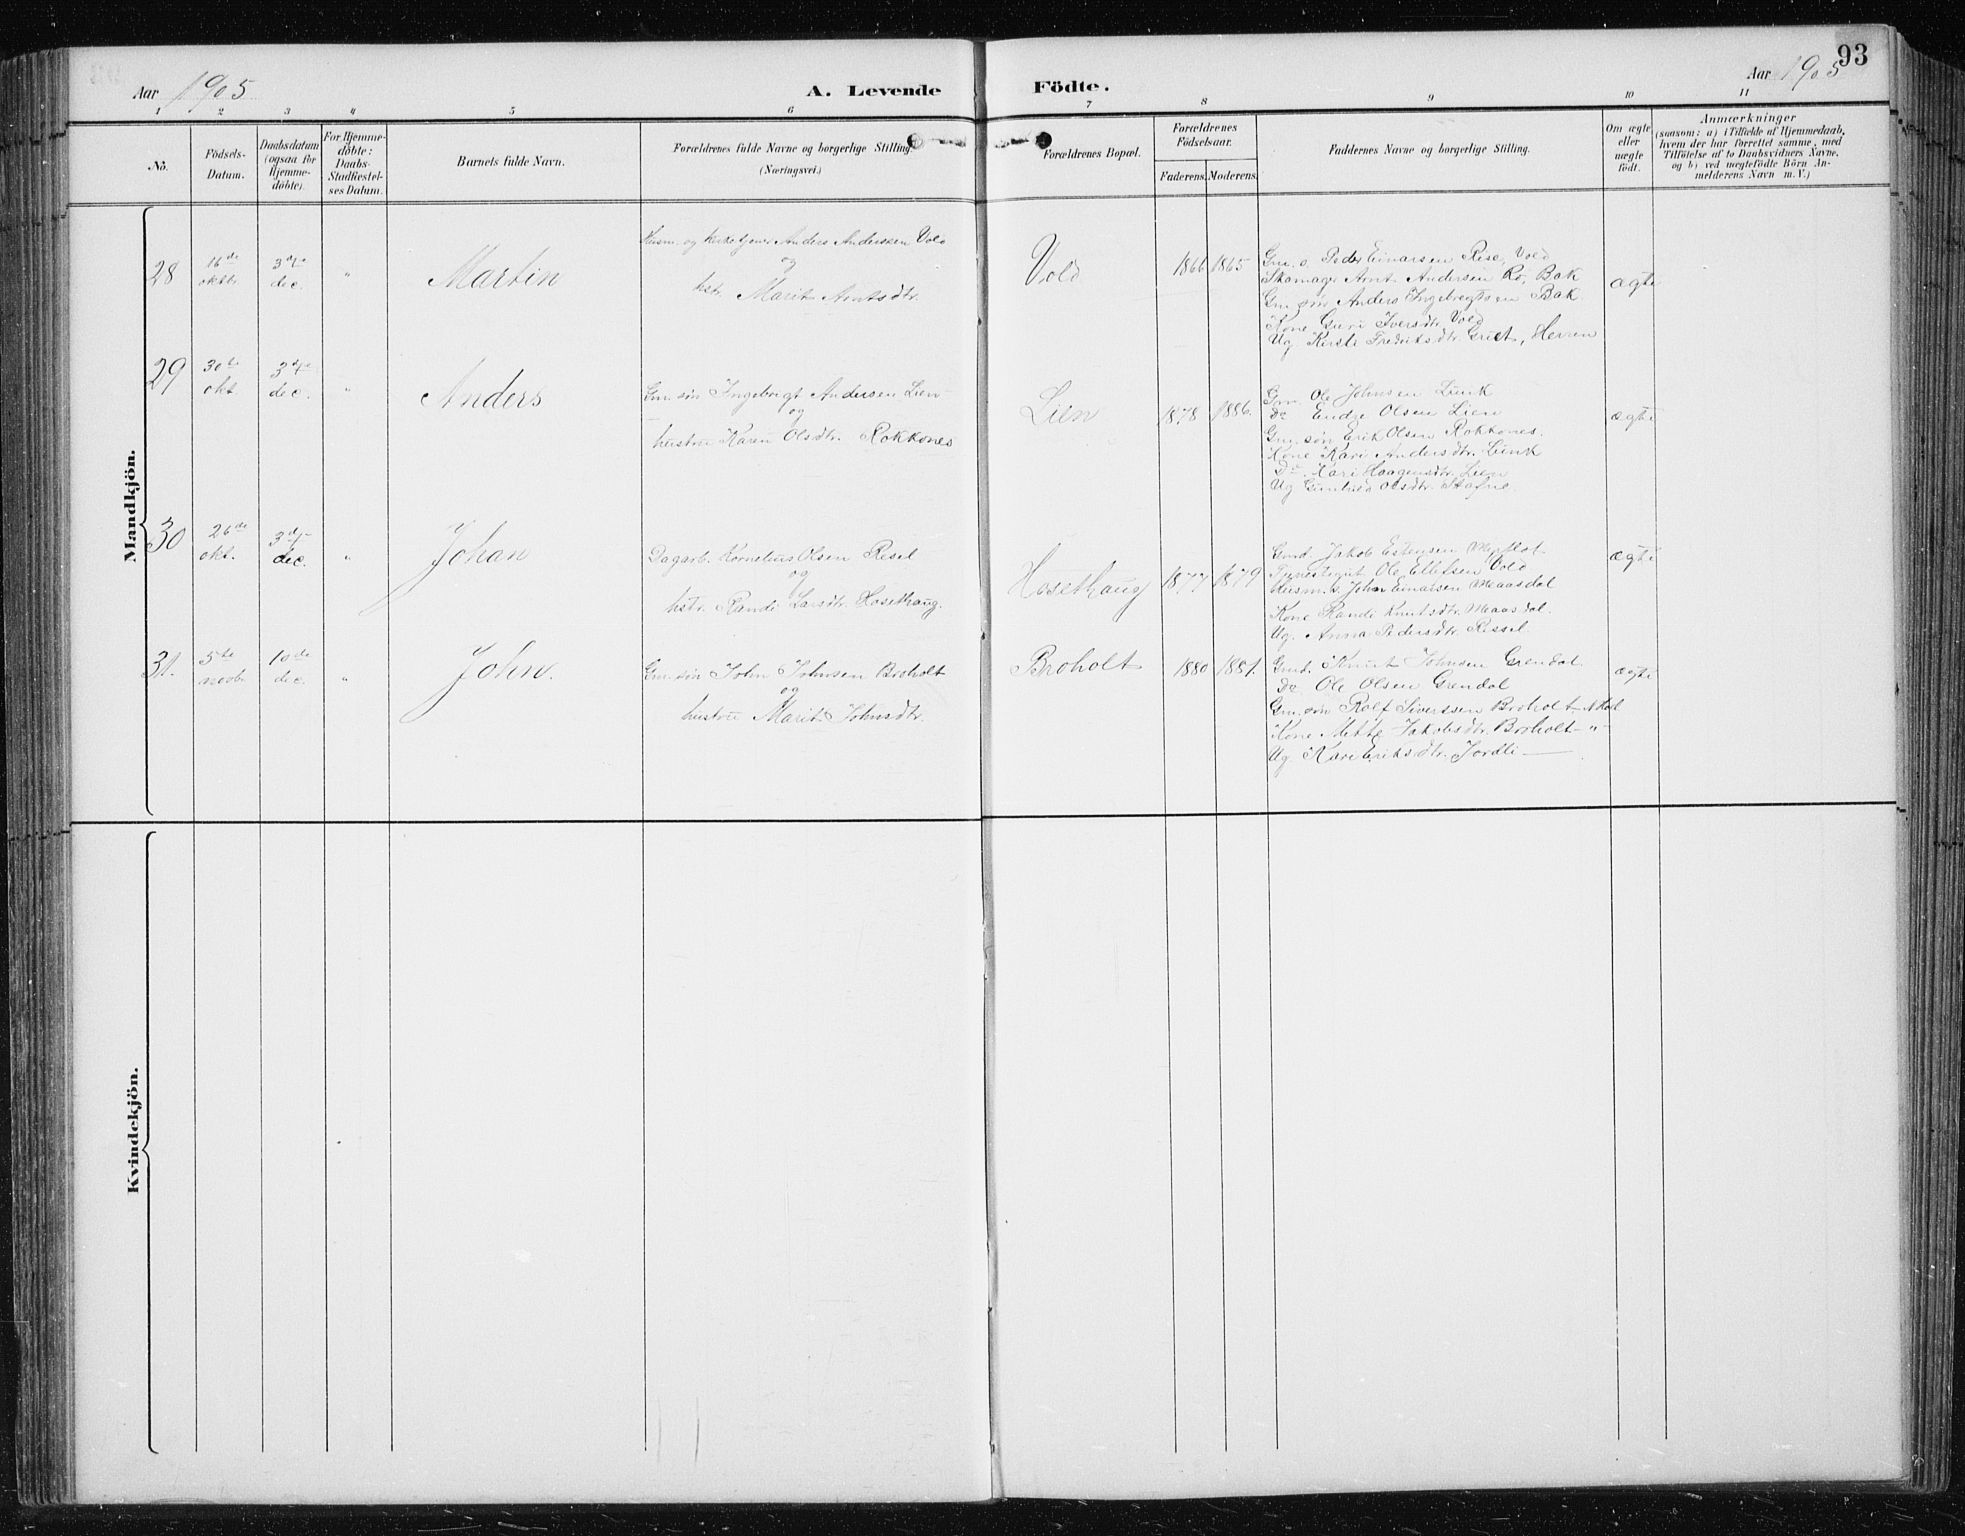 93
Aar 1905
A. Levende Födte.
Aar 1905
1 2 3 4 5 6 7 8 9 10 11
No.
Födsels-Datum.
Daabsdatum (ogsaa for Hjemme-döbte).
For Hjemme-döbte: Daabs-Stadfæstel-ses Datum.
Barnets fulde Navn.
Forældrenes fulde Navne og borgerlige Stilling. (Næringsvei.)
Forældrenes Bopæl.
Forældrenes Födselsaar.
Faderens. Moderens.
Faddernes Navne og borgerlige Stilling.
Om ægte eller uægte född.
Anmærkninger
(saasom: a) i Tilfælde af Hjemmedaab,
hvem der har forrettet samme, med
Tilföielse af to Daabsvidners Navne,
og b) ved uægtefödte Börn An-
melderens Navn m. V.)
Mandkjön.
28 16de oktb. 3die dec. " Martin
Husm. og kirketjener Anders Andersen Vold
og
hstr. Marit Arntsdtr.
Vold 1866 1865
Gm. s. Peder Einarsen Rise, Vold
Skomager Arnt Andersen Ro, Bak
Gm. søn Anders Ingebrigtsen Bak
Kone Guri Iversdtr. Vold
Ug Kirsti Fredriksdtr. Griet, Herren
ægte
29 30te okt. 3die dec. " Anders
Gm. søn Ingebrigt Andersen Lien
og
hustru Karen Olsdtr. Rokkones
Lien 1878 1886.
Gm. Ole Johnsen Lunk
Do Endre Olsen Lien
Gm. søn Erik Olsen Rokkones.
Kone Kari Andersdtr. Lunk
Do. Kari Haagensdtr. Lien
Ug Gunhild Olsdtr. Stafne.
ægte
30 26de okt. 3die dec. " Johan
Dagarb. Kornelius Olsen Resel
og
hstr. Randi Larsdtr. Hosethaug.
Hosethaug 1877 1879
Gmd. Jakob Estensen
Ole Ellefsen Vold
Husm. s. Johan Einarsen Maasdal
Kone Randi Knutsdtr. Maasdal.
Ug. Anna Pedersdtr. Ressel.
ægte
31. 5te novbr. 10de dec. " John.
Gm. søn John Johnsen Broholt
og
hustru Marit Johnsdtr.
Broholt 1880 1881.
Gmd. Knut Johnsen Grendal.
Do Ole Olsen Grendal
Gm. søn Rolf Sivertsen Broholt
Kone Mette Jakobsdtr. Broholt - " -
Ug Kari Eriksdtr. Jordli —
ægte
Kvindekjön.